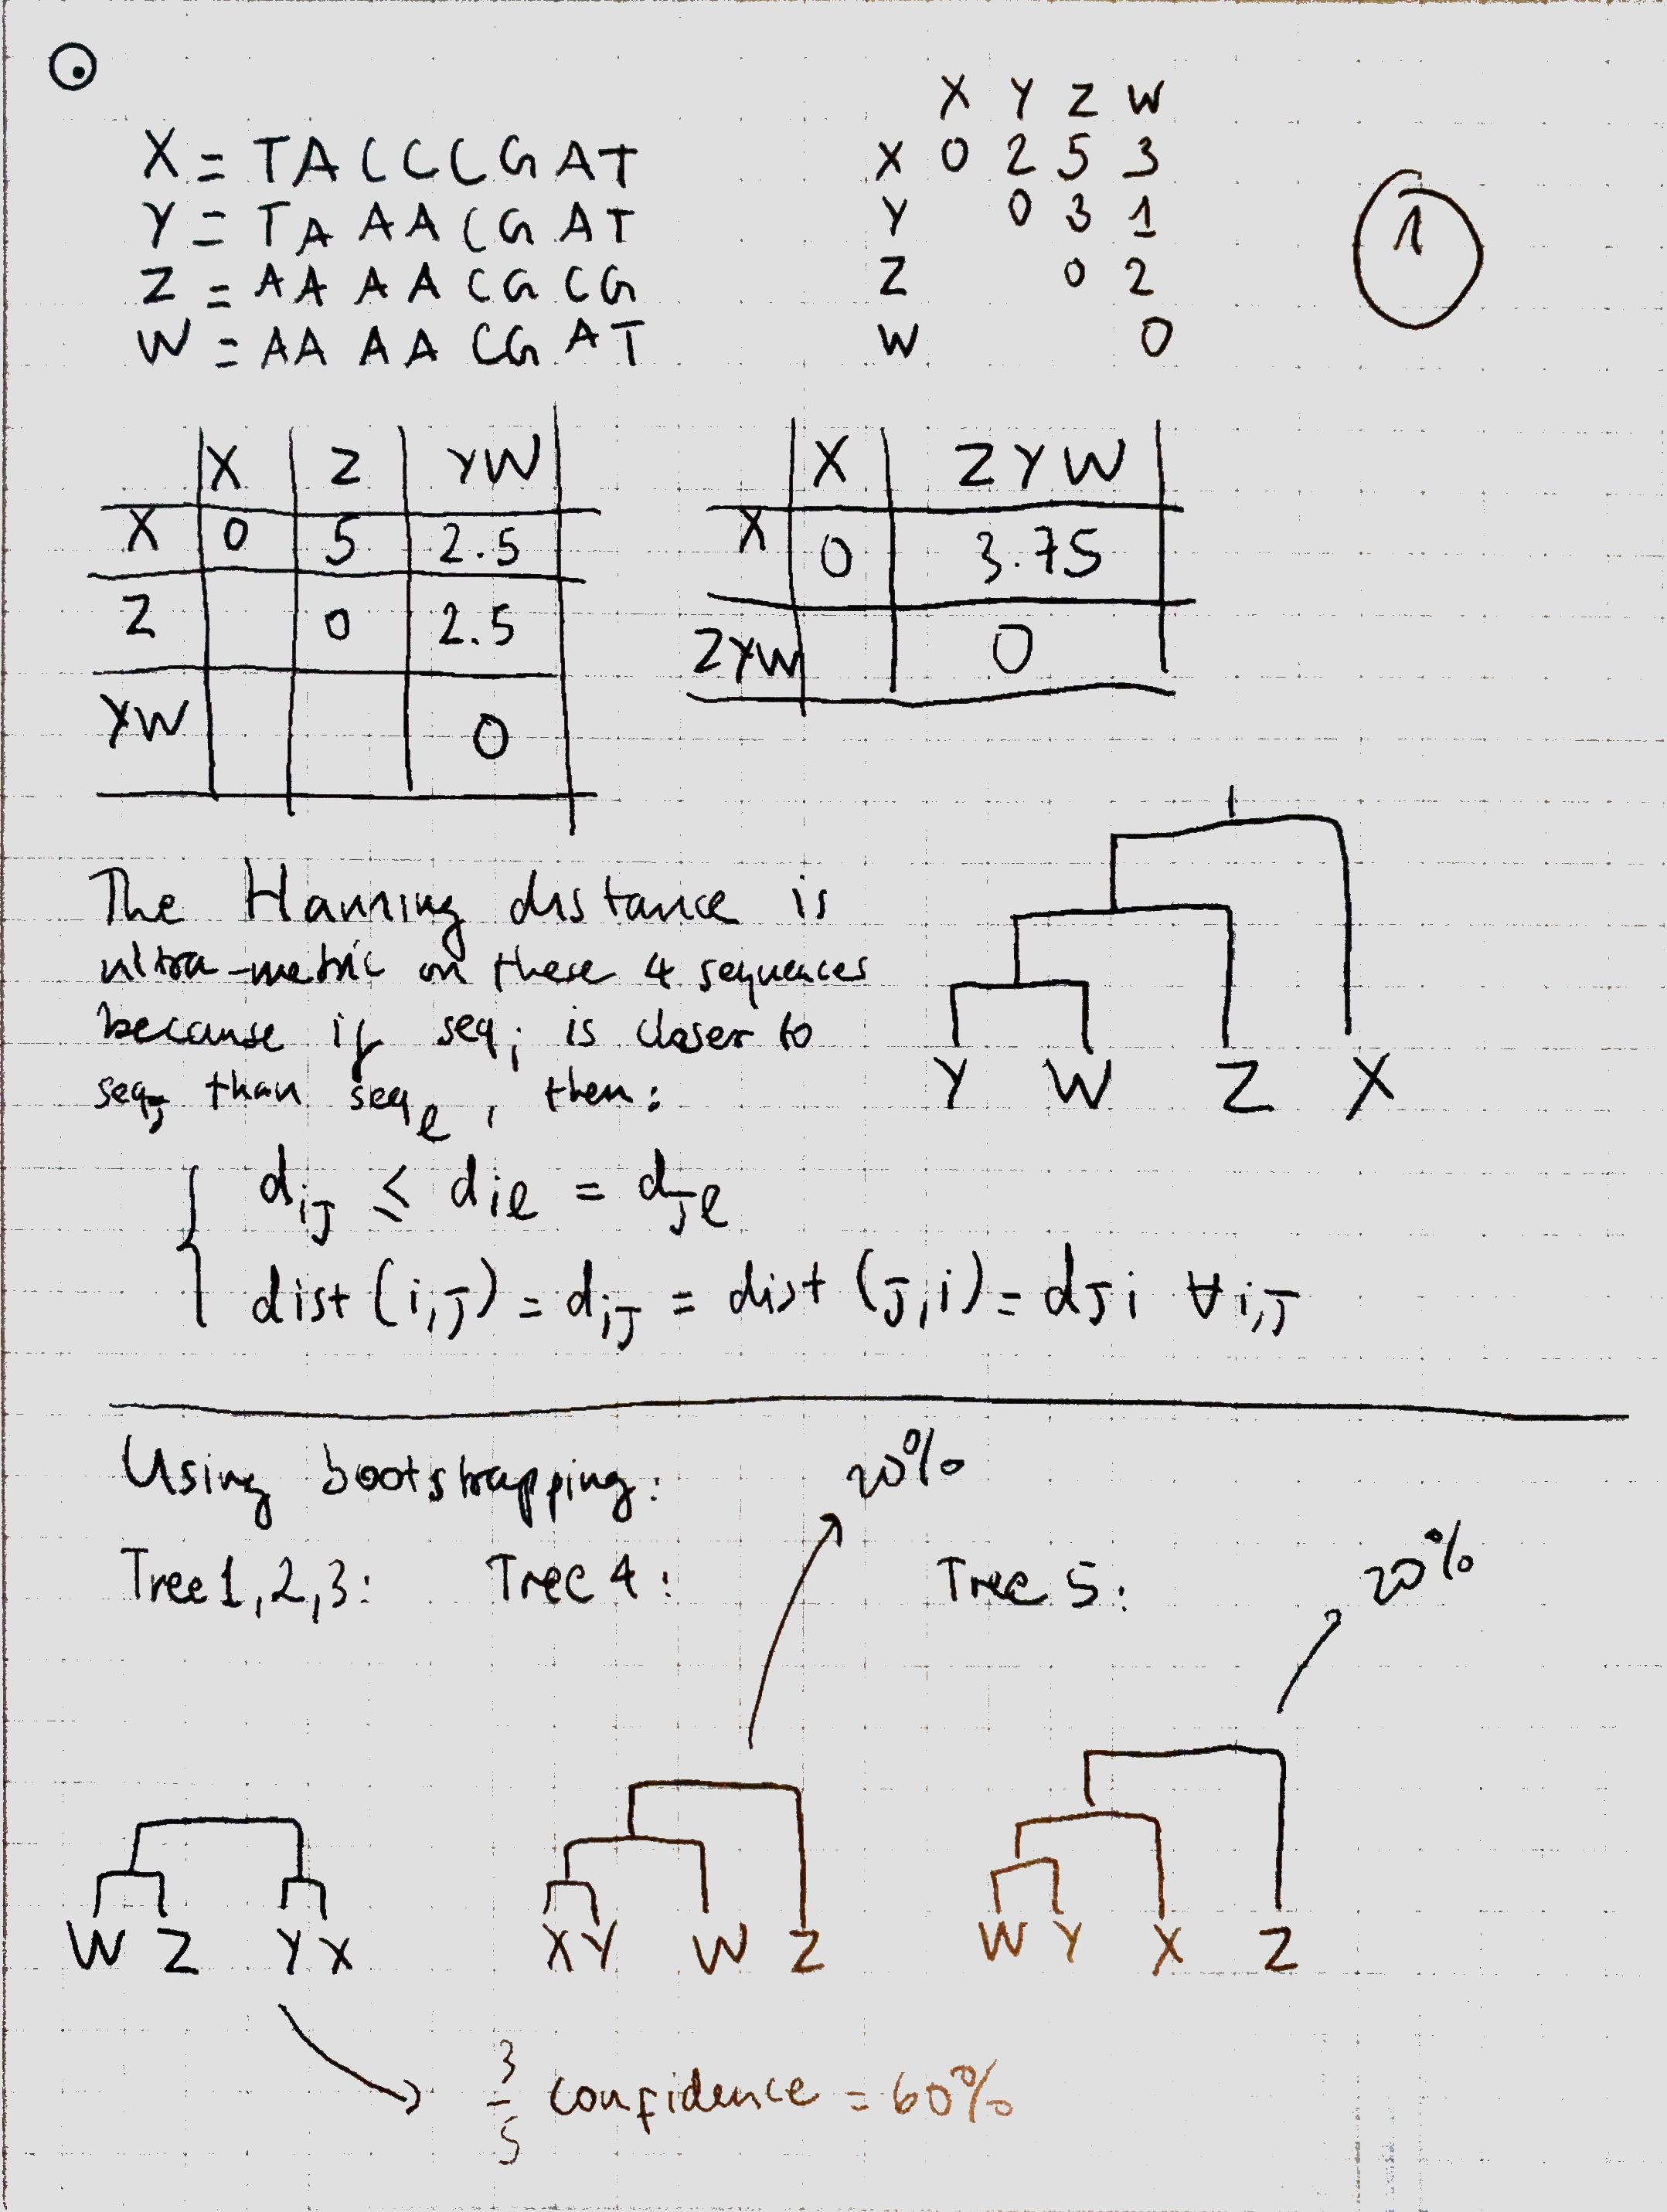 X = TACCCGAT
Y = TAAACGAT
Z = AAAACGCG
W = AAAACGAT
X Y Z W
X 0 2 5 3
Y 0 3 1
Z 0 2
W 0
1
X Z YW
X 0 5 2.5
Z 0 2.5
YW 0
X ZYW
X 0 3.75
ZYW 0
The Hamming distance is
ultra-metric on these 4 sequences
because if seqi is closer to
seqj than seql, then:
dij ≤ dil = djl
dist(i,j) = dij = dist(j,i) = dji ∀i,j
Y W Z X
Using bootstrapping: 20%
Tree 1,2,3: Tree 4: Tree 5: 20%
W Z Y X X Y W Z W Y X Z
3/5 confidence = 60%